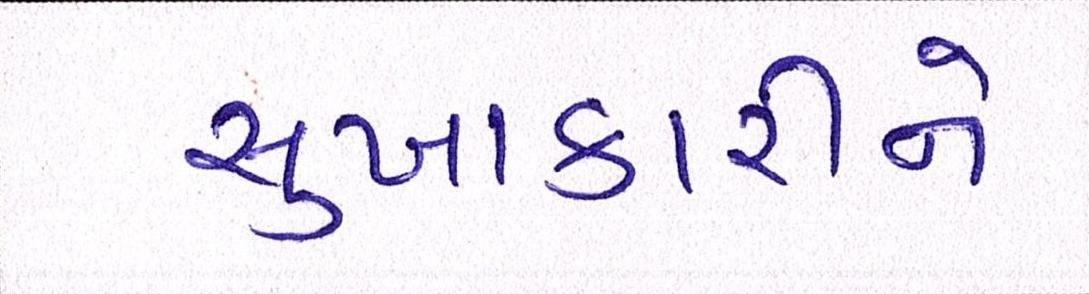 સુખાકારીને